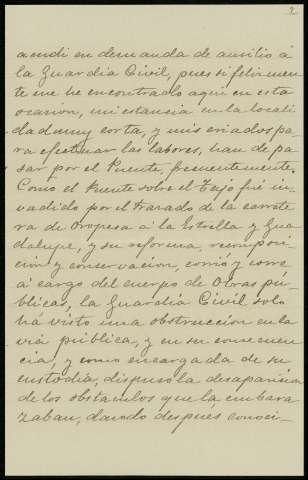 2.
acudí en demanda de auxilio á
la Guardia Civil, pues si felizmen
te me he encontrado aquí en esta
ocasion, mi estancia en la locali
dad muy corta, y mis criados pa
ra efectuar las labores, han de pa
sar por el Puente, frecuentemente.
Como el Puente sobre el Tajo fué in
vadido por el trazado de la carrete
ra de Oropesa á la Estrella y Gua
dalupe, y su reforma, recomposi
cion y conservacion, corrió y corre
á cargo del cuerpo de Obras pú
blicas, la Guardia Civil solo
há visto una obstruccion en la
via pública, y en su consecuen
cia, y como encargada de su
custodia, dispuso la desaparicion
de los obstaculos que la embara
zaban, dando despues conoci-